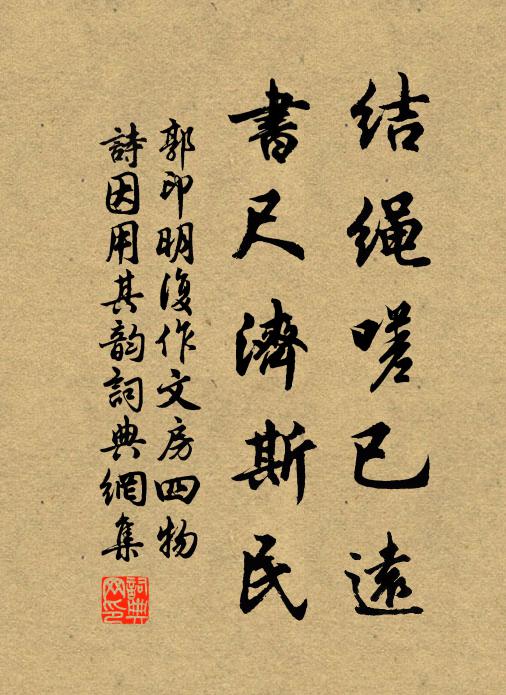 结绳嗟已遠
書尺濟斯民
郭印明復作文房四物
詩因用其韵詞典網集